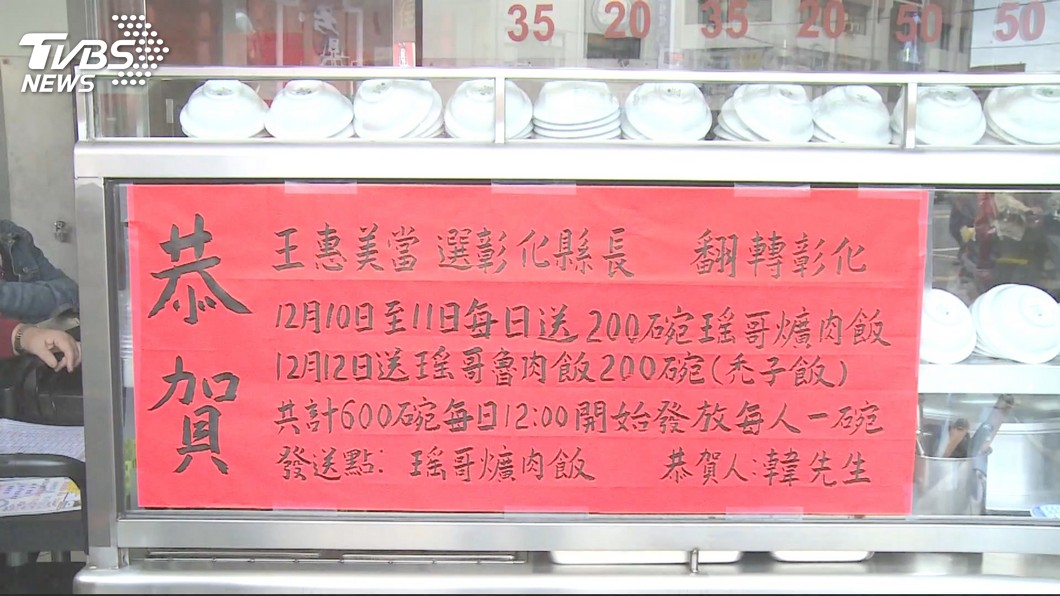 TVBS
NEWS
35 20 35 20 50 50
恭賀
王惠美當選彰化縣長 翻轉彰化
12月10日至11日每日送200碗瑶哥爌肉飯
12月12日送瑶哥魯肉飯200碗(禿子飯)
共計600碗每日12:00開始發放每人一碗
發送點:瑶哥爌肉飯 恭賀人:韓先生